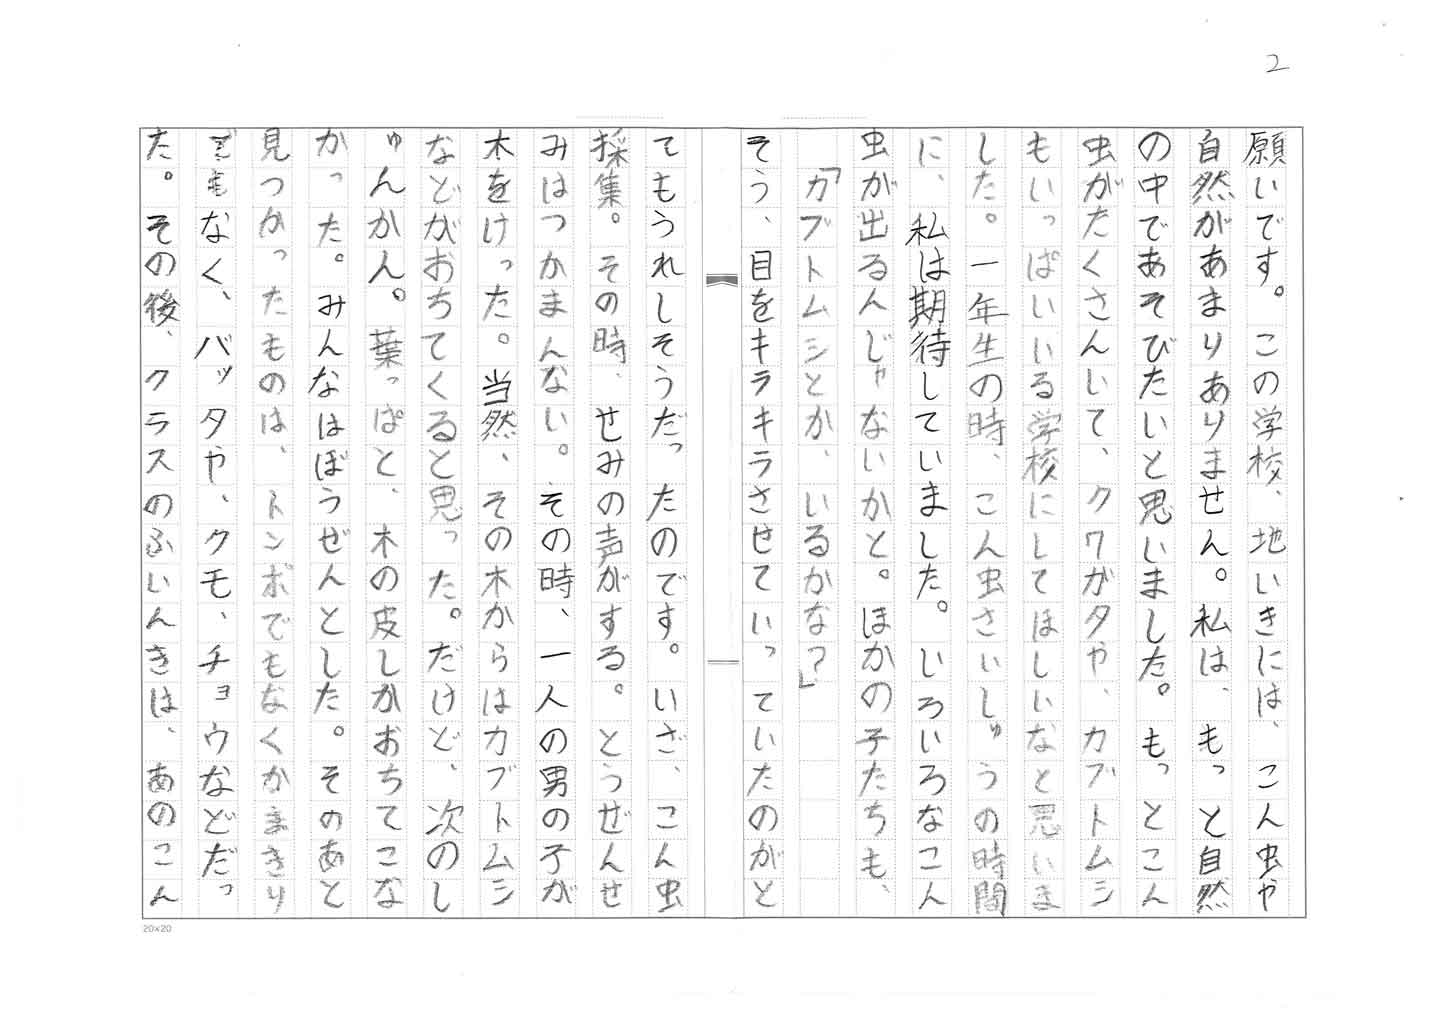 2
願いです。この学校、地いきには、こん虫や
自然があまりありません。私は、もっと自然
の中であそびたいと思いました。もっとこん
虫がたくさんいて、クワガタや、カブトムシ
もいっぱいいる学校にしてほしいなと思いま
した。一年生の時、こん虫さいしゅうの時間
に、私は期待していました。いろいろなこん
虫が出るんじゃないかと。ほかの子たちも、
「カブトムシとか、いるかな?」
そう、目をキラキラさせていっていたのがと
てもうれしそうだったのです。いざ、こん虫
採集。その時、せみの声がする。とうぜんせ
みはつかまんない。その時、一人の男の子が
木をけった。当然、その木からはカブトムシ
などがおちてくると思った。だけど、次のし
ゅんかん。葉っぱと、木の皮しかおちてこな
かった。みんなはぼうぜんとした。そのあと
見つかったものは、トンボでもなくかまきり
でもなく、バッタや、クモ、チョウなどだっ
た。その後、クラスのふいんきは、あのこん
20×20